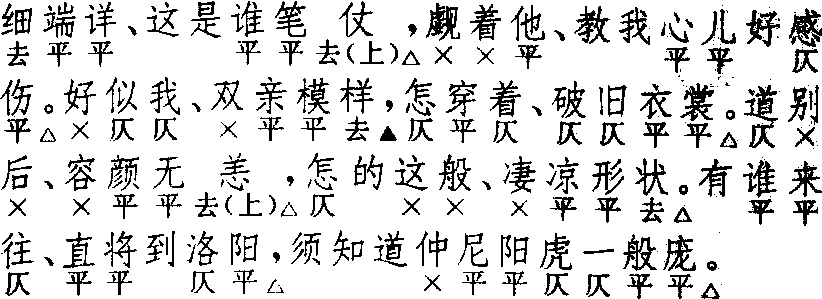 细端详、这是谁笔仗，觑着他、教我心儿好感
去平平 平平去(上)△××平 平平 仄
伤。好似我、双亲模样，怎穿着、破旧衣裳。道别
平△×仄仄 ×平平去▲仄平仄 仄仄平平△仄×
后、容颜无恙，怎的这般、凄凉形状。有谁来
× ×平平去(上)△仄 ×× ×平平去△ 平平
往、直将到洛阳，须知道仲尼阳虎一般庞。
仄 平平 仄平△ ×平平仄仄平平△